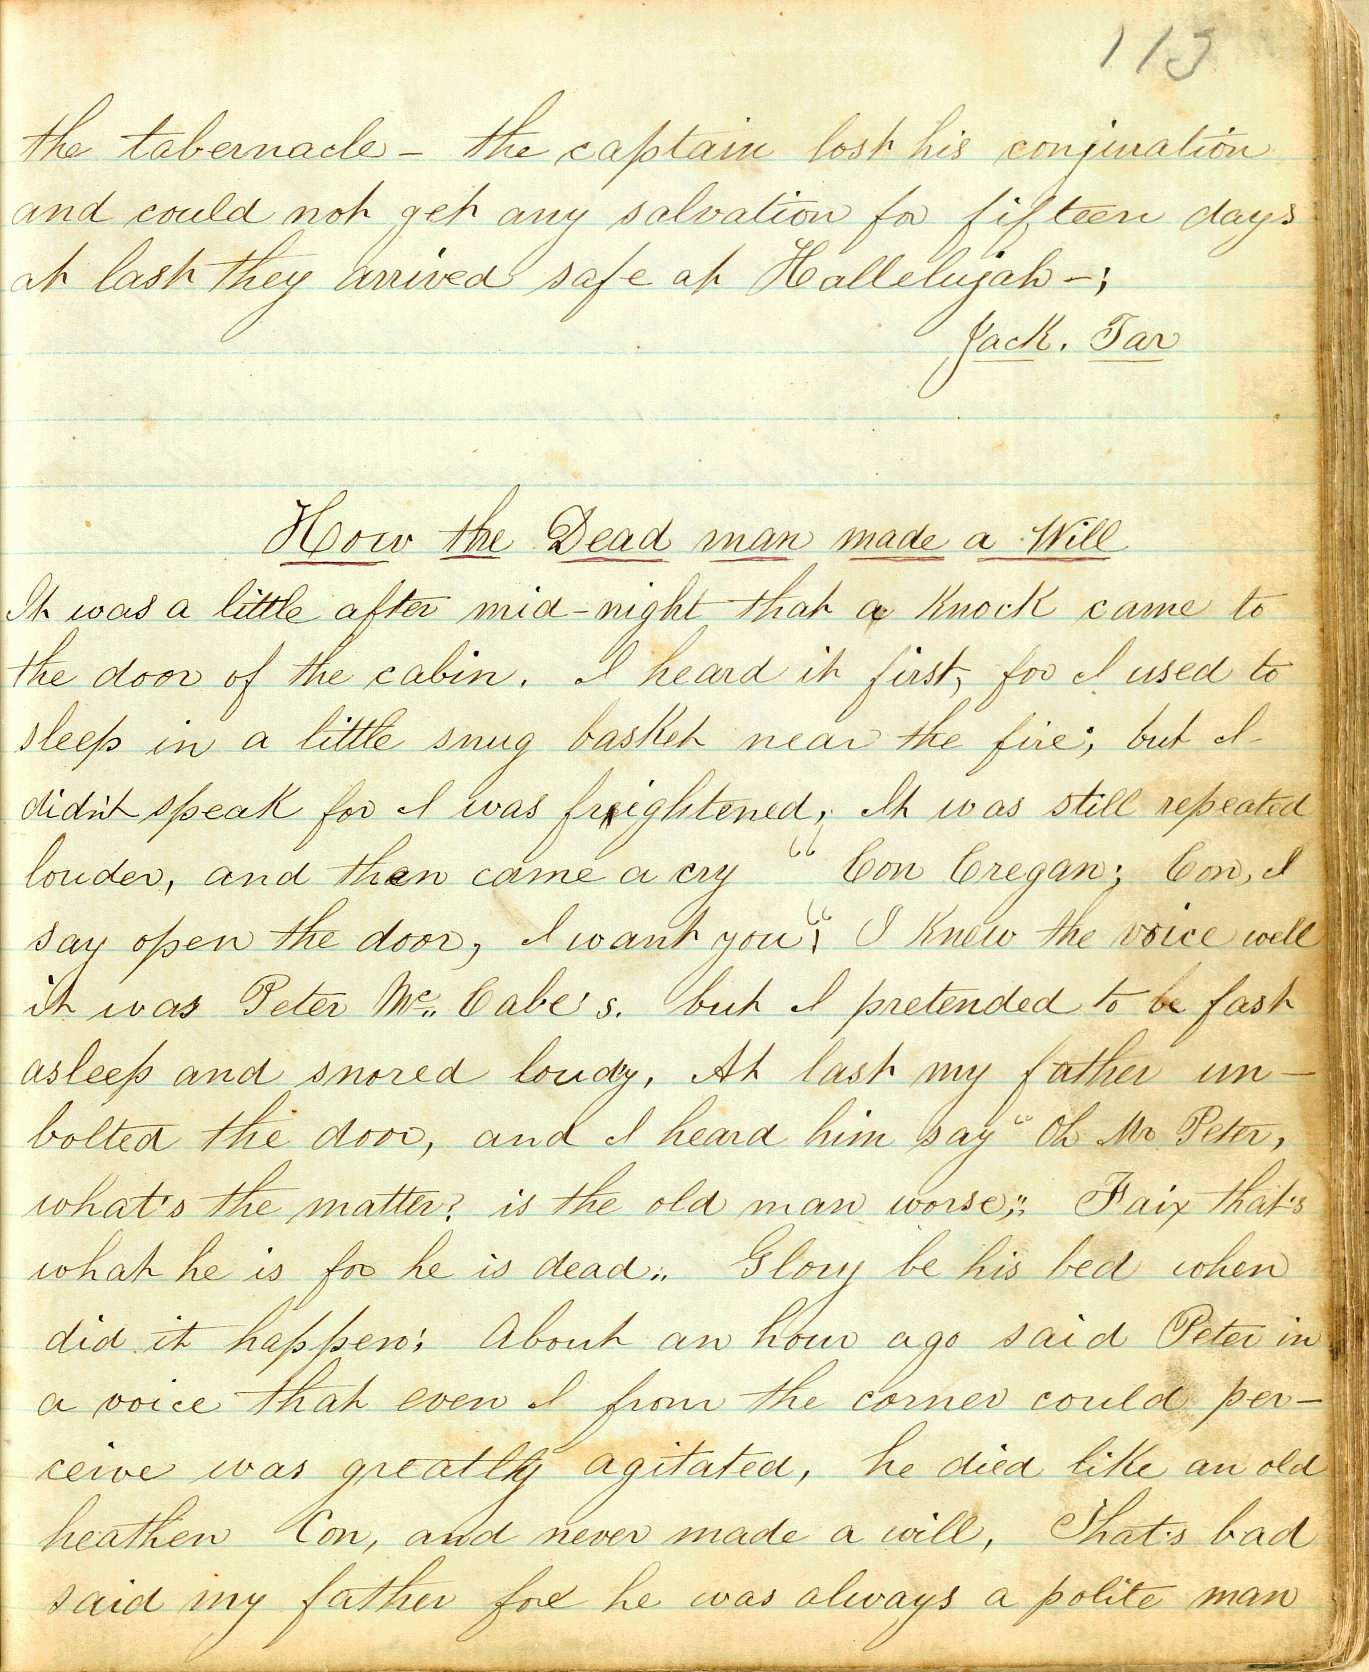 113
the tabernacle - the captain lost his conjuration
and could not get any salvation for fifteen days
at last they arrived safe at Hallelujah -;
Jack. Tar
How the Dead man made a Will
It was a little after mid-night that a knock came to
the door of the cabin. I heard it first, for I used to
sleep in a little snug basket near the fire; but I
didn't speak for I was frightened, It was still repeated
louder, and then came a cry " Con Cregan; Con, I
say open the door, I want you;" I knew the voice well
it was Peter Mc,, Cabe's. but I pretended to be fast
asleep and snored loudy. At last my father un-
bolted the door, and I heard him say "Oh Mr Peter,
what's the matter? is the old man worse;" Faix that's
what he is for he is dead.. Glory be his bed when
did it happen; About an hour ago said Peter in
a voice that even I from the corner could per-
ceive was greatly agitated, he died like an old
heathen Con, and never made a will, That's bad
said my father for he was always a polite man